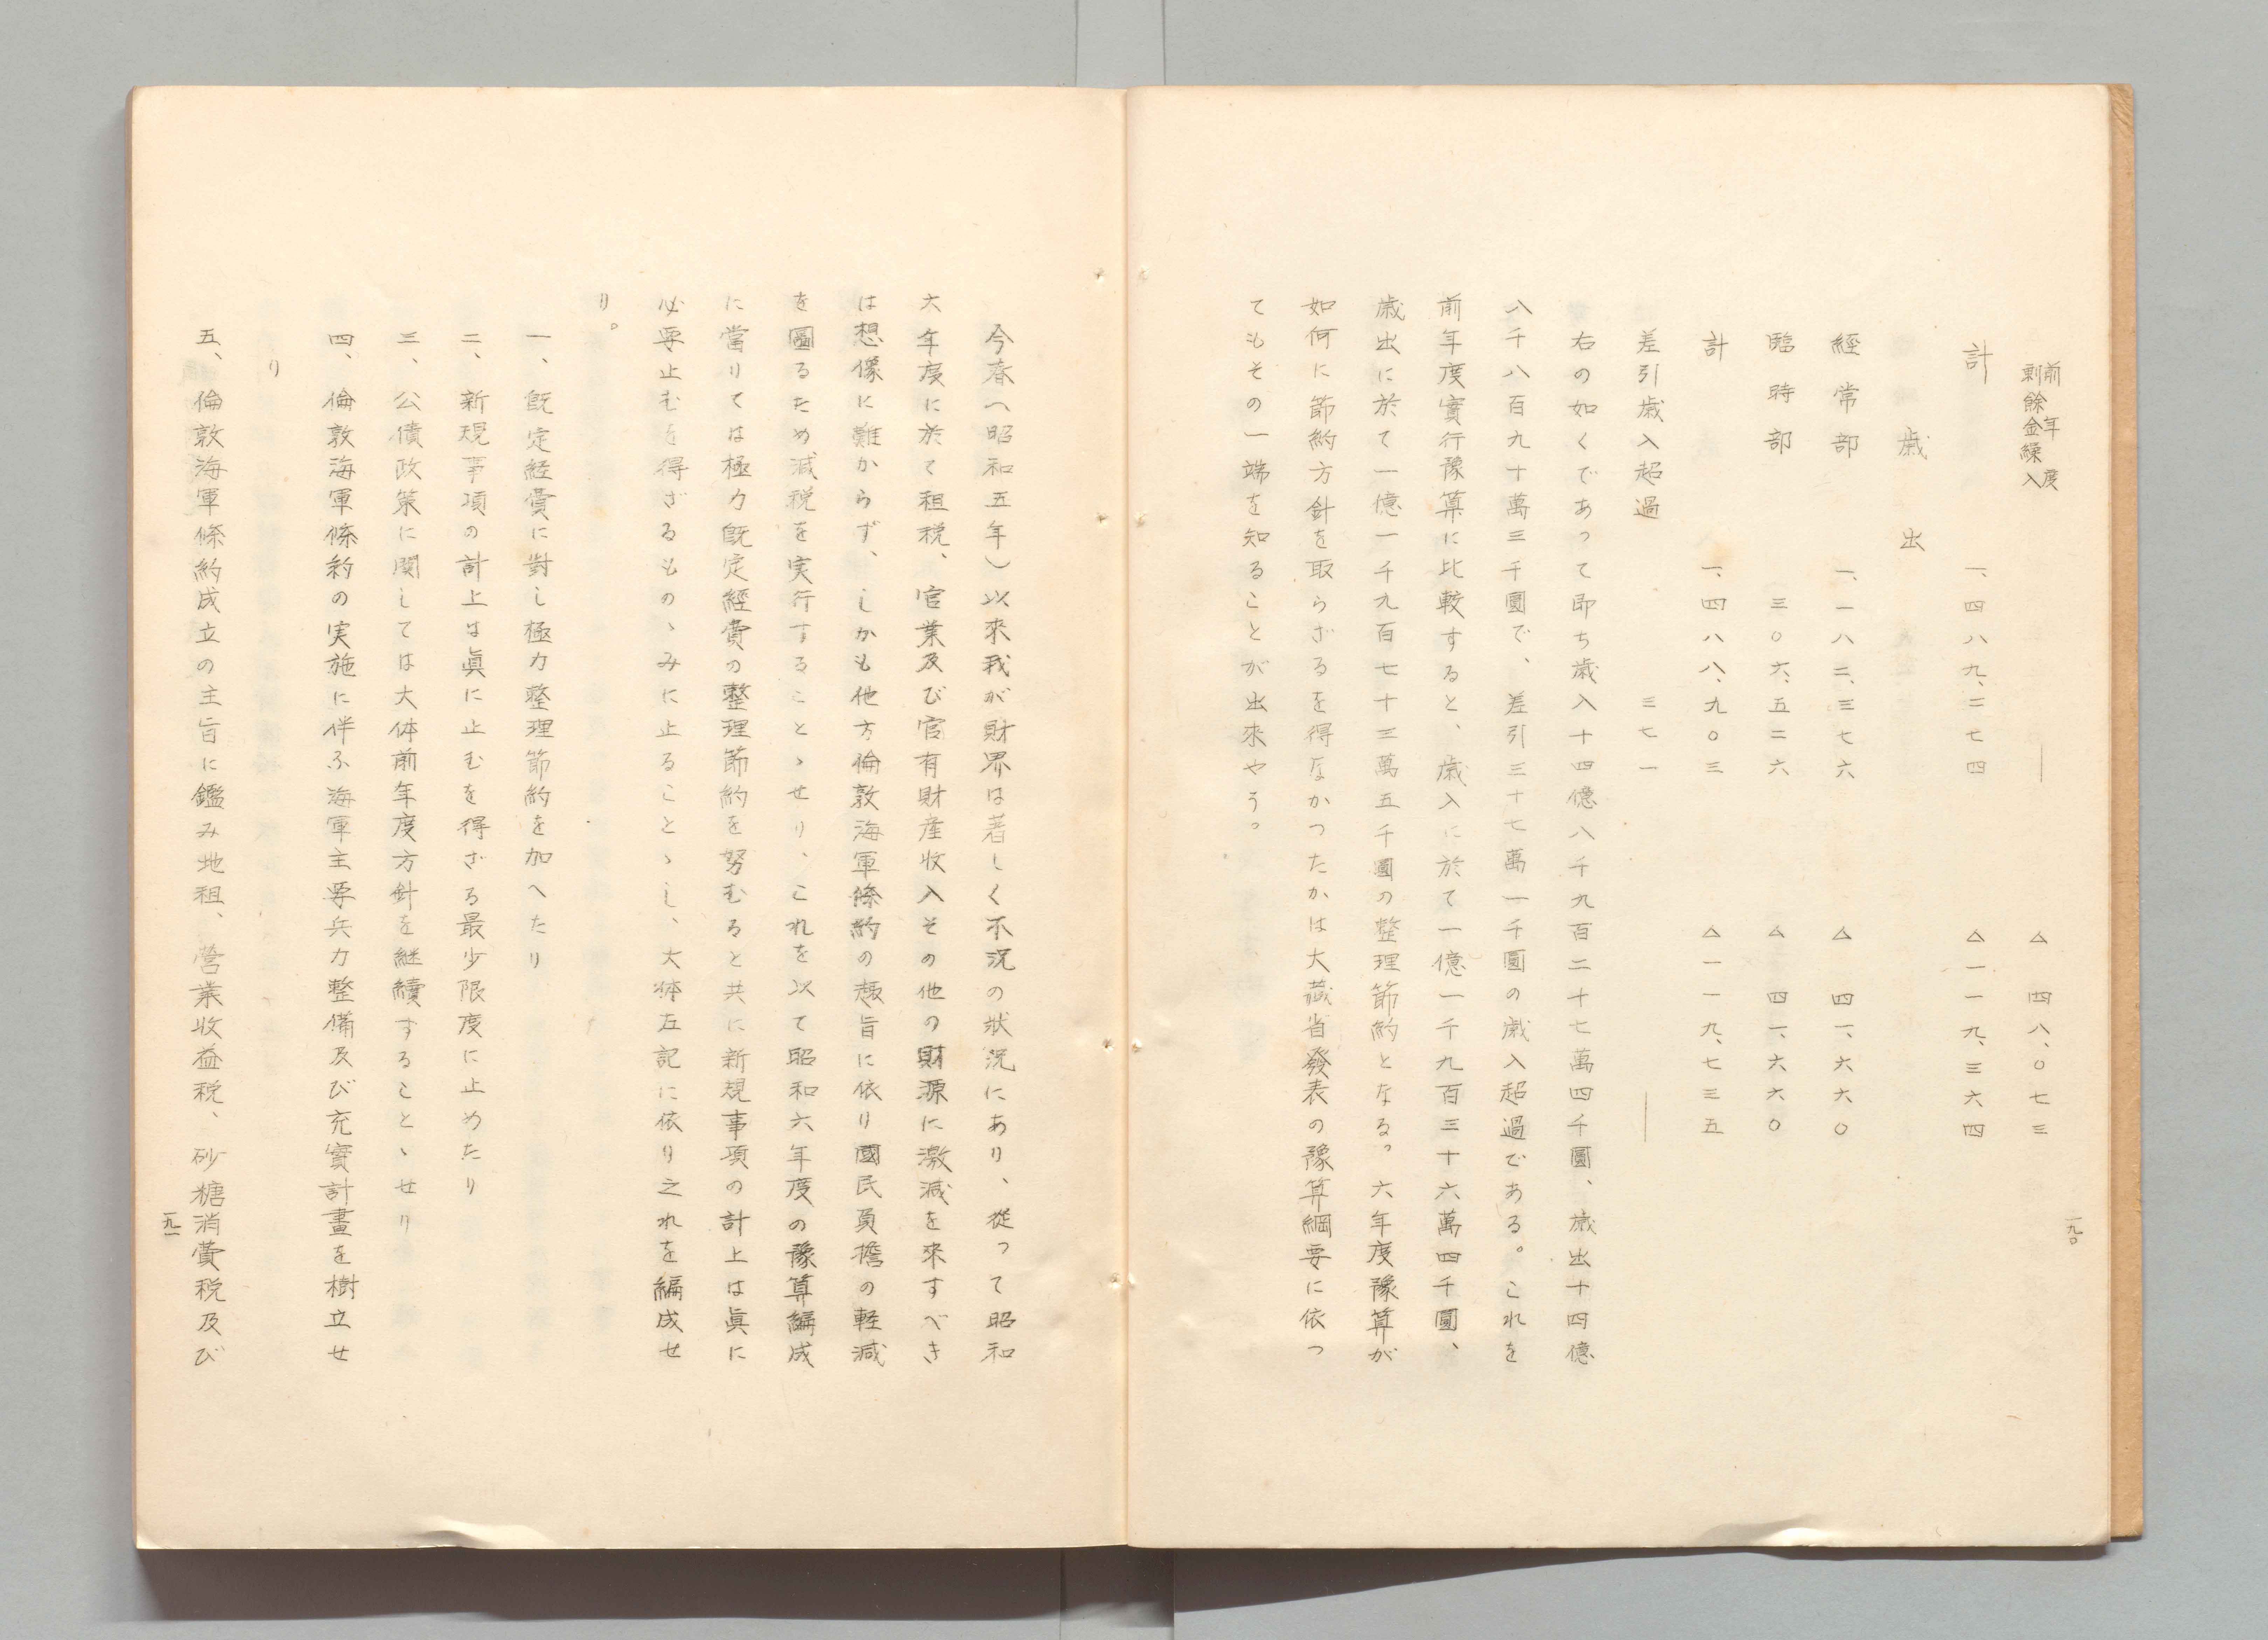 前年度
剰餘金繰入　―　△四八、〇七三
計　一、四八九、二七四　△一一九、三六四
歳出
經常部　一、一八二、三七六　△四一、六六〇
臨時部　三〇六、五二六　△四一、六六〇
計　一、四八八、九〇三　△一一九、七三五
差引歳入超過　三七一　―
右の如くであって即ち歳入十四億八千九百二十七萬四千圓、歳出十四億
八千八百九十萬三千圓で、差引三十七萬一千圓の歳入超過である。これを
前年度實行豫算に比較すると、歳入に於て一億一千九百三十六萬四千圓、
歳出に於て一億一千九百七十三萬五千圓の整理節約となる。六年度豫算が
如何に節約方針を取らざるを得なかつたかは大藏省發表の豫算綱要に依つ
てもその一端を知ることが出來やう。
一九〇
今春（昭和五年）以來我が財界は著しく不況の狀況にあり、從って昭和
六年度に於て租税、官業及び官有財産收入その他の財源に激減を來すべき
は想像に難からず、しかも他方倫敦海軍條約の趣旨に依り國民負擔の軽減
を圖るため減税を実行することゝせり、これを以て昭和六年度の豫算編成
に當りては極力既定經費の整理節約を努むると共に新規事項の計上は眞に
必要止むを得ざるものゝみに止ることゝし、大体左記に依り之れを編成せ
り。
一、既定経費に對し極力整理節約を加へたり
二、新規事項の計上は眞に止むを得ざる最少限度に止めたり
三、公債政策に関しては大体前年度方針を継續することゝせり
四、倫敦海軍條約の実施に伴ふ海軍主要兵力整備及び充實計畫を樹立せ
り
五、倫敦海軍條約成立の主旨に鑑み地租、営業收益税、砂糖消費税及び
一九一